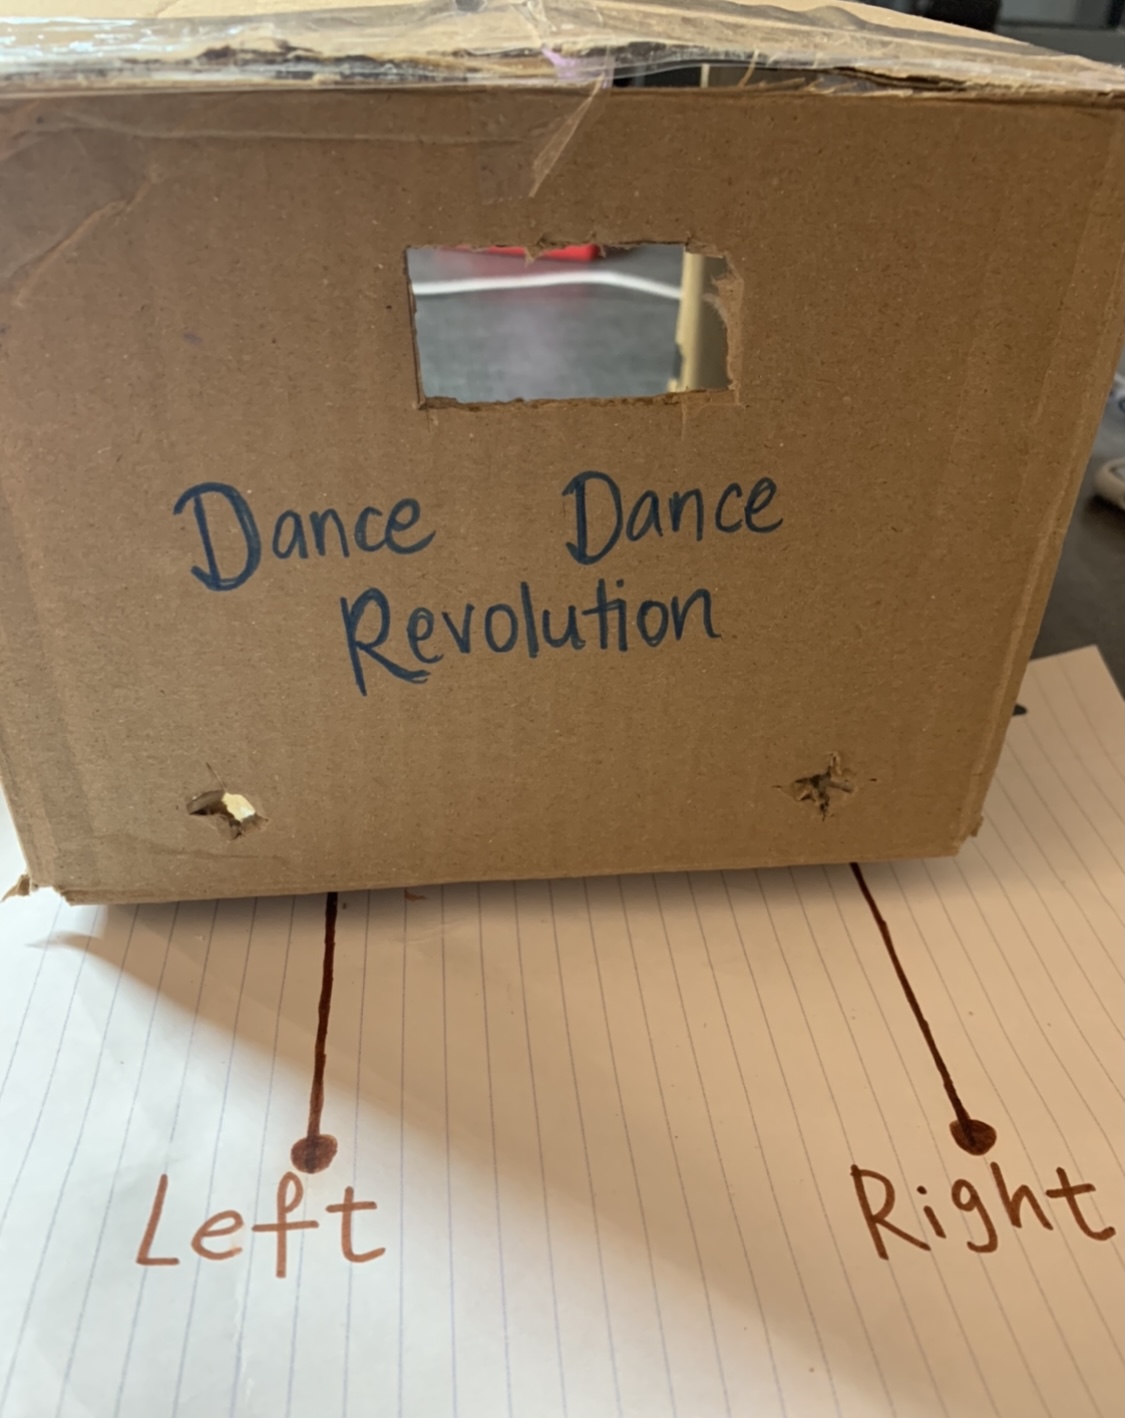 Dance Dance
Revolution
Left Right